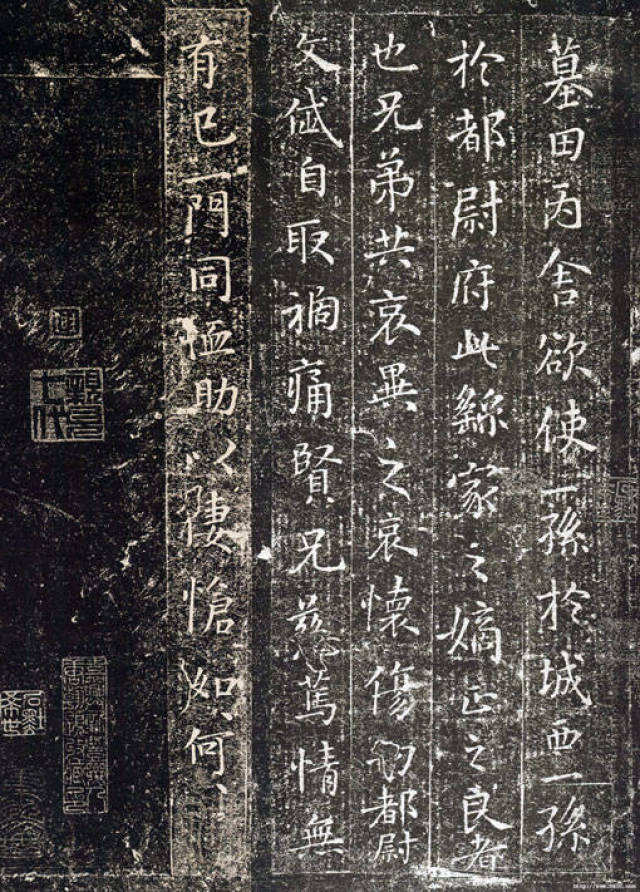 墓田丙舍欲使一孫於城西一孫
於都尉府此繇家之嫡正之良者
也兄弟共哀異之哀懷傷切都尉
文岱自取禍痛賢兄慈篤情無
有已一門同恤助以悽愴如何
親見七代